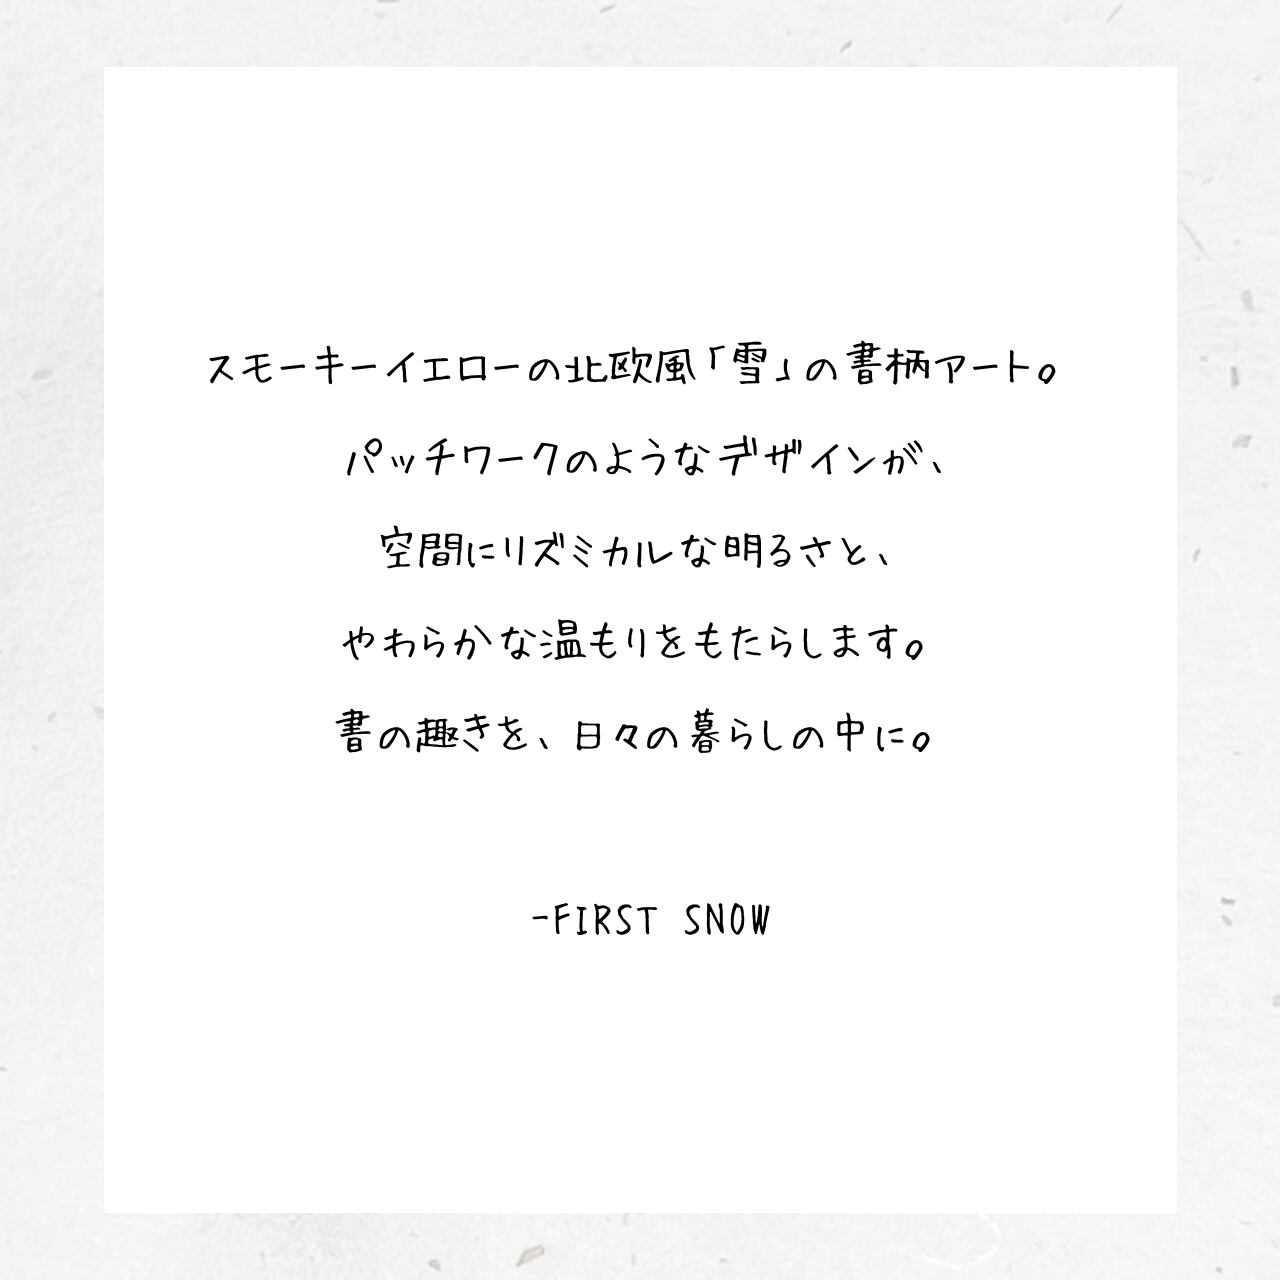 スモーキーイエローの北欧風「雪」の書柄アート。
パッチワークのようなデザインが、
空間にリズミカルな明るさと、
やわらかな温もりをもたらします。
書の趣きを、日々の暮らしの中に。
-FIRST SNOW